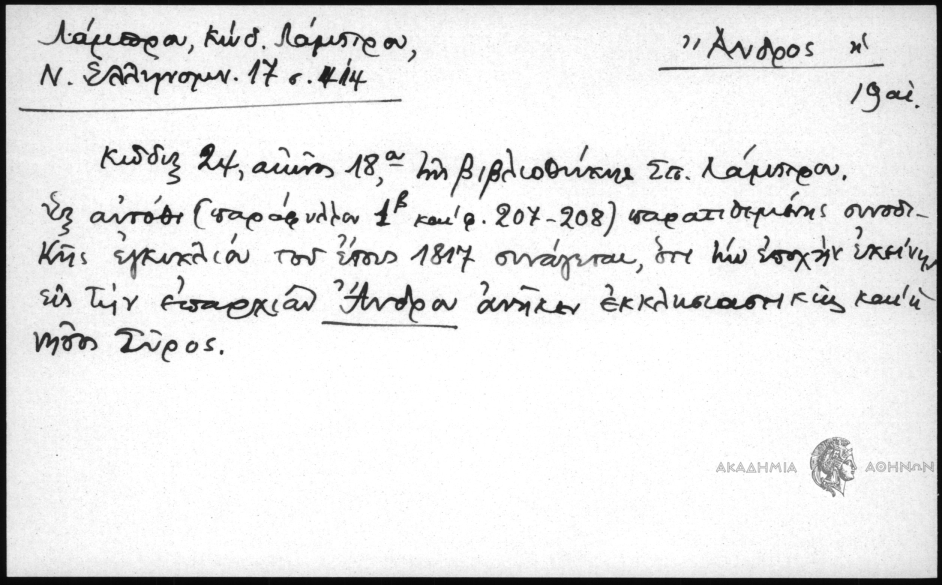 Λάμπρου, Κώδ. Λάμπρου,
Ν. Ἑλληνομν. 17 σ. 414
Ἄνδρος
19 αἰ.
Κώδιξ 24, αἰῶνος 18, τῆς βιβλιοθήκης Σπ. Λάμπρου.
Ἐξ αὐτόθι (παράφυλλον 1β καὶ φ. 207-208) παρατιθεμένης συνοδι-
κῆς ἐγκυκλίου τοῦ ἔτους 1817 συνάγεται, ὅτι τὴν ἐποχὴν ἐκείνην
εἰς τὴν ἐπαρχίαν Ἄνδρου ἀνῆκεν ἐκκλησιαστικῶς καὶ ἡ
νῆσος Σῦρος.
ΑΚΑΔΗΜΙΑ ΑΘΗΝΩΝ